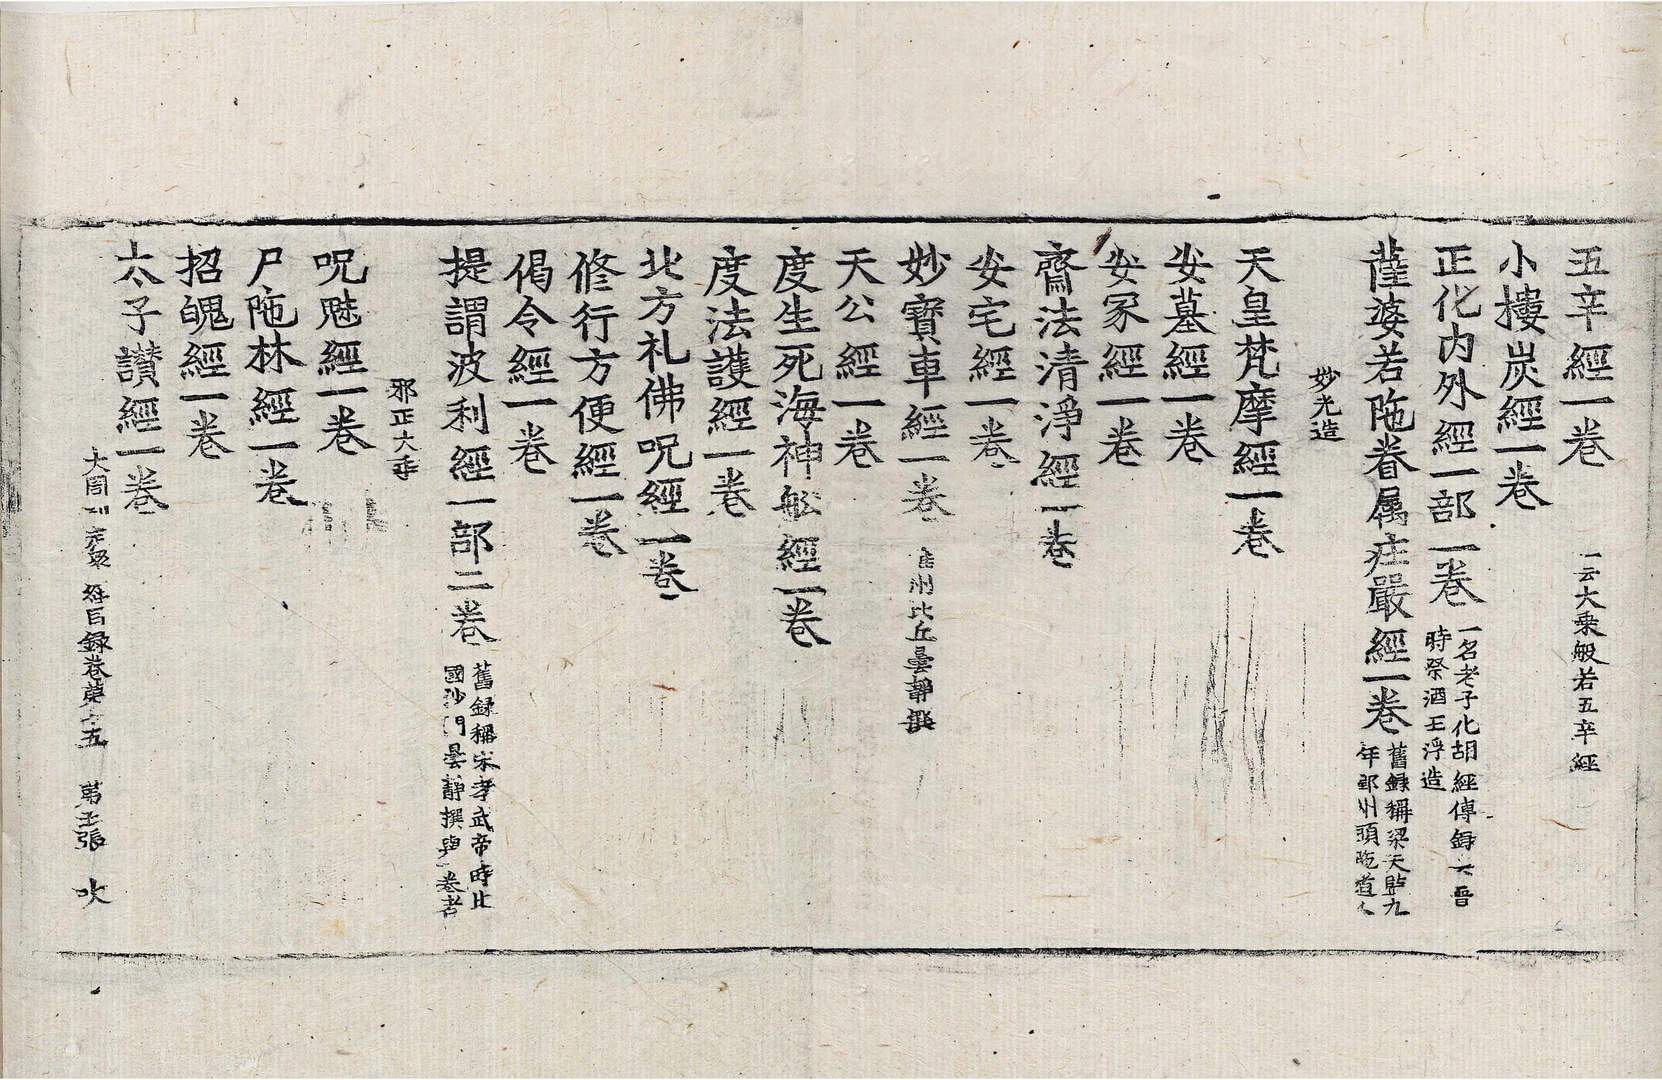 五辛經一卷 一云大乘般若五辛經
小摟炭經一卷
正化內外經一部一卷 一名老子化胡經傳錄云晉
時祭酒王浮造
薩婆若陁眷属庄嚴經一卷 舊録稱梁天監九
年郢州頭陁道人
妙光造
天皇梵摩經一卷
安墓經一卷
安冢經一卷
齋法清淨經一卷
安宅經一卷
妙寶車經一卷 州比丘曇靜撰
天公經一卷
度生死海神舩經一卷
度法護經一卷
北方礼佛呪經一卷
修行方便經一卷
偈令經一卷
提謂波利經一部二卷 舊録稱宋孝武帝時北
國沙門曇靜撰與一卷者
邪正大乖
呪魅經一卷
尸陁林經一卷
招魄經一卷
太子讃經一卷
大周刊定衆經目録卷第十五 第五張 火